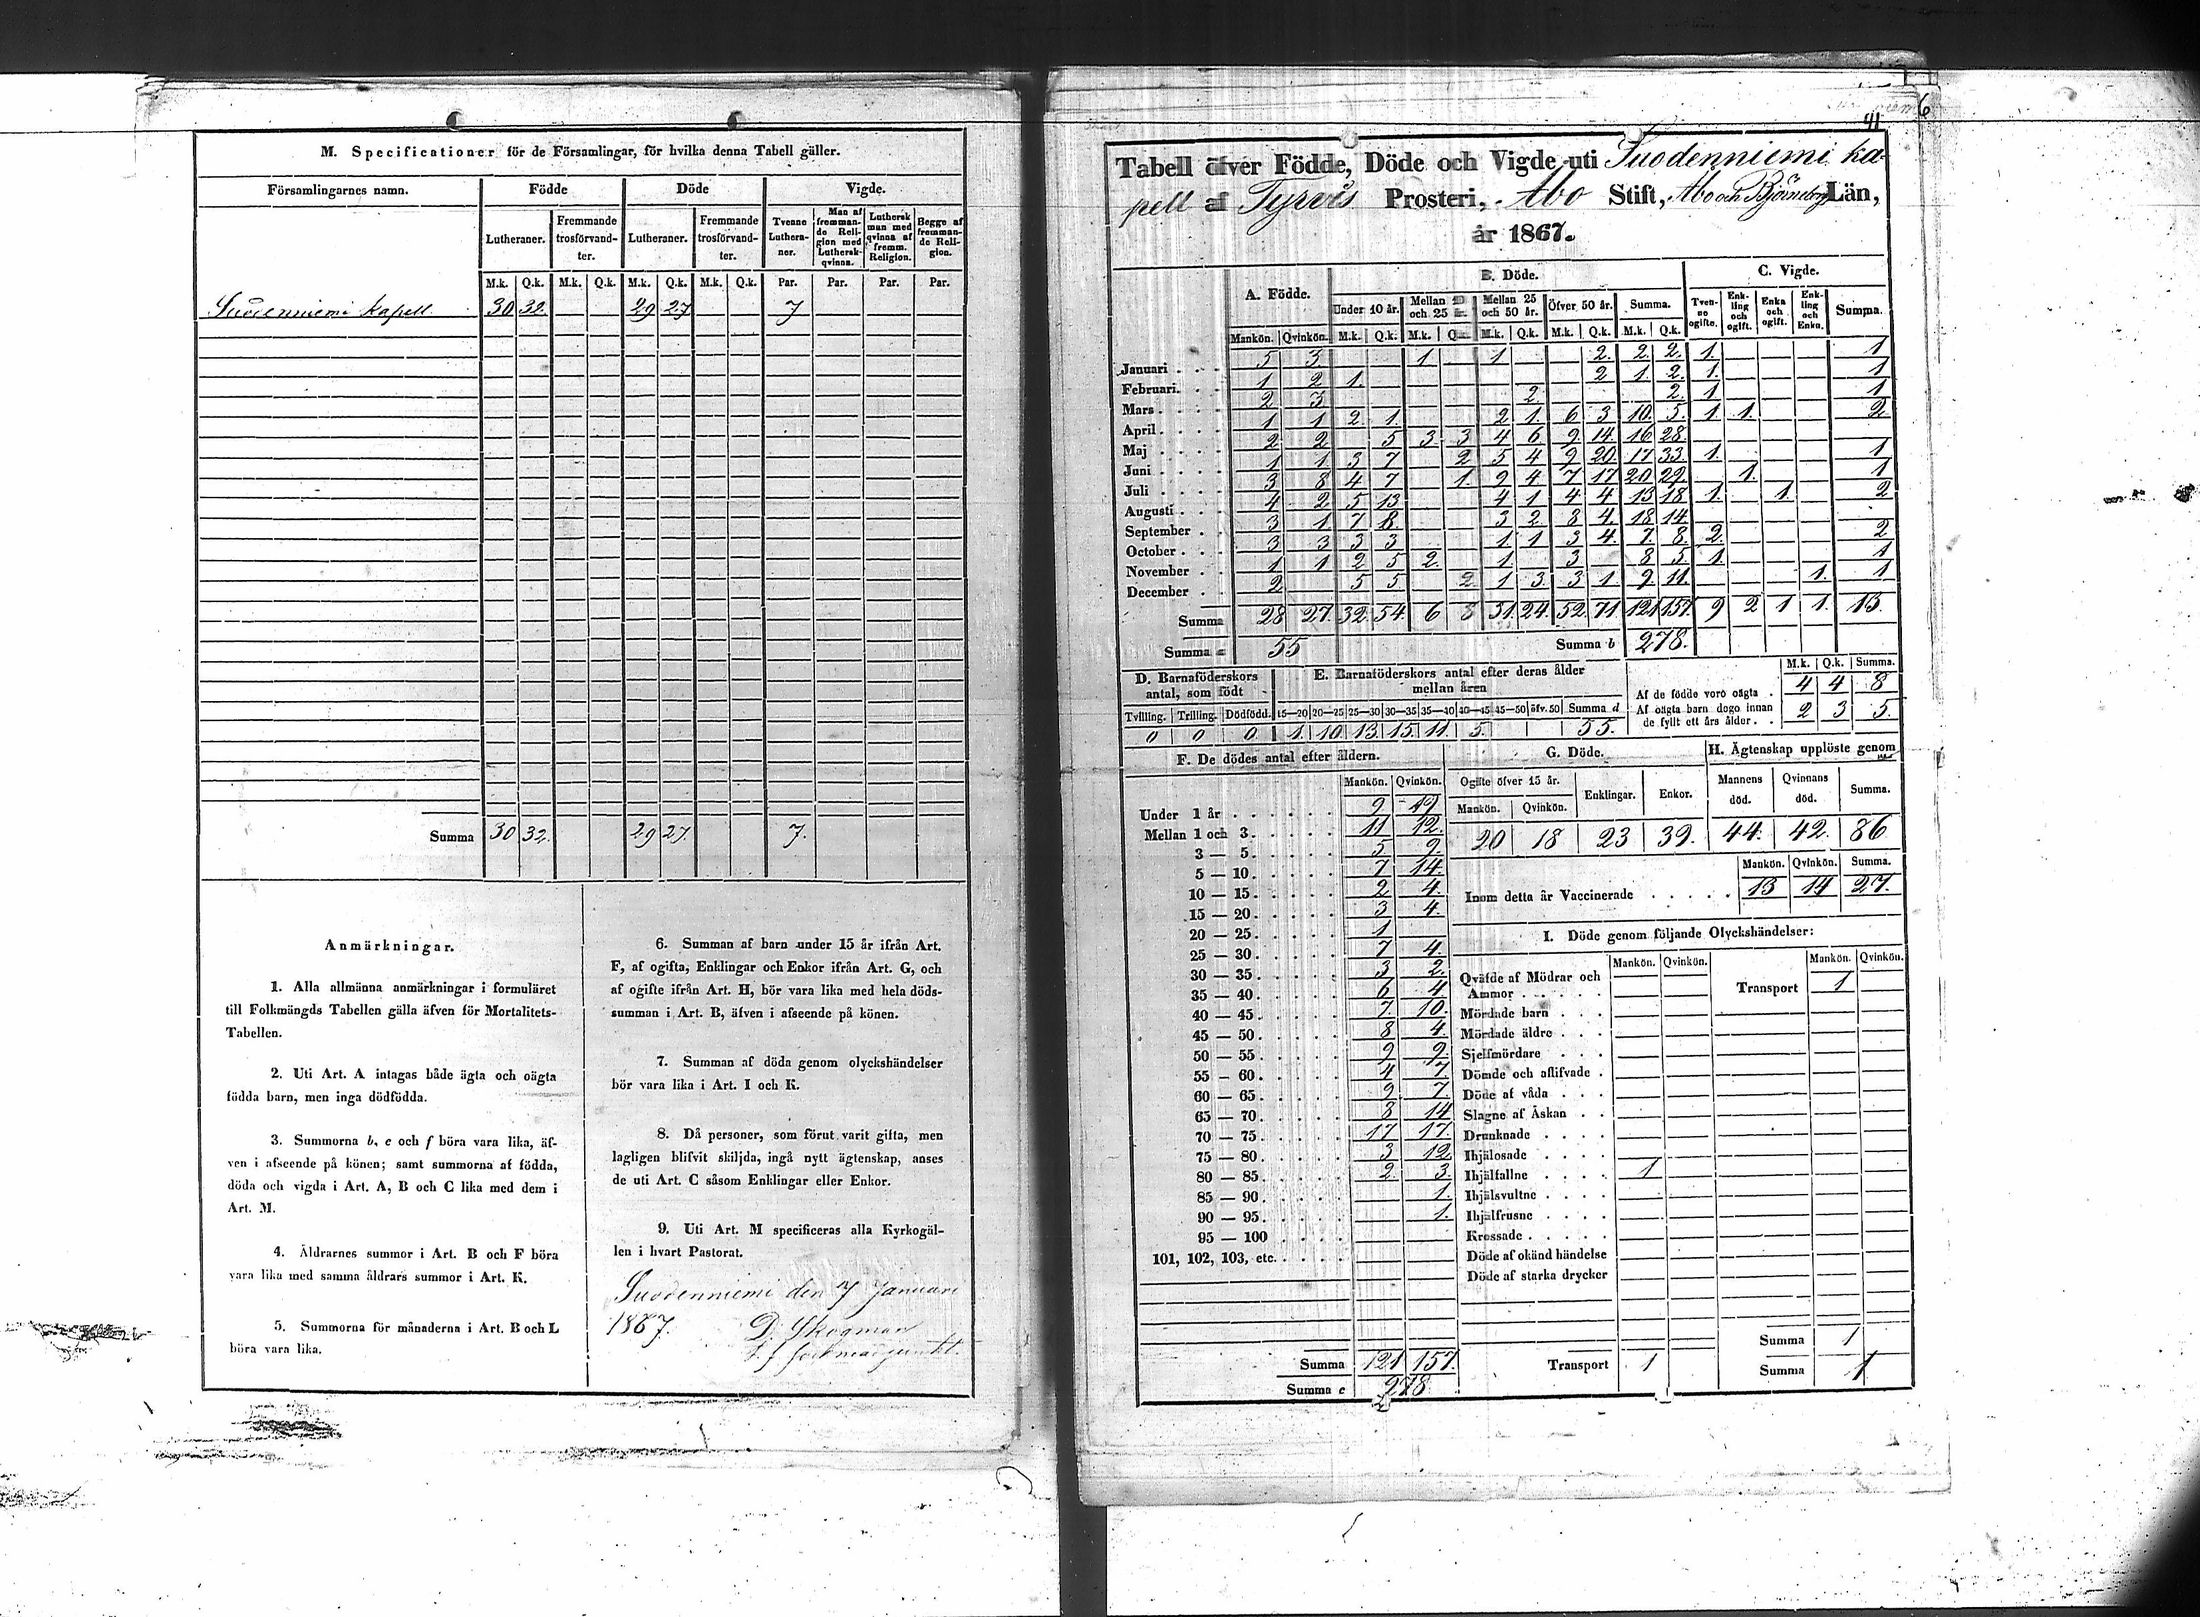 M. Specificationer för de Församlingar, för hvilka denna Tabell gäller.
Församlingarnes namn. Födde Döde Vigde.
Lutheraner. Fremmande trosförvandter. Lutheraner. Fremmande trosförvandter. Tvenne Lutheraner. Man af fremmande Religion med Luthersk qvinna. Luthersk man med qvinna af fremm. Religion. Begge af fremmande Religion.
M.k. Q.k. M.k. Q.k. M.k. Q.k. M.k. Q.k. Par. Par. Par. Par.
Suodenniemi kapell 30 32. 29 27 7
Summa 30 32. 29 27. 7.
Anmärkningar.
1. Alla allmänna anmärkningar i formuläret
till Folkmängds Tabellen gälla äfven för Mortalitets-
Tabellen.
2. Uti Art. A intagas både ägta och oägta
födda barn, men inga dödfödda.
3. Summorna b, c och f böra vara lika, äf-
ven i afseende på könen; samt summorna af födda,
döda och vigda i Art. A, B och C lika med dem i
Art. M.
4. Åldrarnes summor i Art. B och F böra
vara lika med samma åldrars summor i Art. K.
5. Summorna för månaderna i Art. B och L
böra vara lika.
6. Summan af barn under 15 år ifrån Art.
F, af ogifta, Enklingar och Enkor ifrån Art. G, och
af ogifte ifrån Art. H, bör vara lika med hela döds-
summan i Art. B, äfven i afseende på könen.
7. Summan af döda genom olyckshändelser
bör vara lika i Art. I och K.
8. Då personer, som förut varit gifta, men
lagligen blifvit skiljda, ingå nytt ägtenskap, anses
de uti Art. C såsom Enklingar eller Enkor.
9. Uti Art. M specificeras alla Kyrkogäl-
len i hvart Pastorat.
Suodenniemi den 7 Januari
1867. D. Skogman
41
6
Tabell öfver Födde, Döde och Vigde uti Suodenniemi ka-
pell af Tyrvis Prosteri, Åbo Stift, Åbo och Björneborgs Län,
år 1867.
A. Födde. B. Döde. C. Vigde.
Under 10 år. Mellan 10 och 25 år. Mellan 25 och 50 år. Öfver 50 år. Summa. Tvenne ogifte. Enkling och ogift. Enka och ogift. Enkling och Enka. Summa.
Mankön. Qvinkön. M.k. Q.k. M.k. Q.k. M.k. Q.k. M.k. Q.k. M.k. Q.k.
Januari 5 3. 1 1 2. 2. 2. 1. 1
Februari. 1 2 1. 2 1. 2. 1. 1
Mars 2 3 2. 2. 1 1
April 1 1 2 1. 2 1. 6. 3 10. 5. 1 1. 2
Maj 2 2 5 3. 3 4 6 9 14 16 28.
Juni 1 1 3 7 2 5 4 9 20. 17 33. 1. 1
Juli 3 8 4 7 1. 9 4 7 17 20 29. 1. 1
Augusti 4 2 5 13. 4 1 4 4 13 18 1. 1. 2
September 3 1 7 8. 3 2 8 4. 18 14.
October 3 3 3 3 1 1 3 4. 7 8. 2. 2
November 1 1 2 5 2. 1 3 8 5 1. 1
December 2 5 5 2. 1 3. 3 1 9 11. 1. 1
Summa 28 27. 32. 54. 6 8 31. 24. 52. 71 121 157. 9 2 1 1. 13.
Summa a 55 Summa b 278.
D. Barnaföderskors antal, som födt
E. Barnaföderskors antal efter deras ålder mellan åren
Tvilling. Trilling. Dödfödd. 15—20 20—25 25—30 30—35 35—40 40—45 45—50 öfv. 50 Summa d
0 0 0. 1. 10. 13. 15. 11. 5. 55.
M.k. Q.k. Summa.
Af de födde voro oägta 4 4 8
Af oägta barn dogo innan
de fyllt ett års ålder 2 3 5.
F. De dödes antal efter åldern.
Mankön. Qvinkön.
Under 1 år 9 19.
Mellan 1 och 3. 11 12.
3 — 5. 5 9.
5 — 10. 7 14.
10 — 15. 2 4.
15 — 20. 3 4.
20 — 25. 1
25 — 30. 7 4.
30 — 35. 3 2.
35 — 40. 6 4
40 — 45. 7. 10.
45 — 50. 8 4.
50 — 55. 9 9.
55 — 60. 4 7.
60 — 65. 9. 7.
65 — 70. 8 14
70 — 75. 17 17.
75 — 80. 3 12.
80 — 85. 2. 3.
85 — 90. 1.
90 — 95. 1.
95 — 100
101, 102, 103, etc.
Summa 121 157.
Summa c 278
G. Döde.
Ogifte öfver 15 år. Enklingar. Enkor.
Mankön. Qvinkön.
20 18 23 39.
H. Ägtenskap upplöste genom
Mannens död. Qvinnans död. Summa.
44. 42. 86
Mankön. Qvinkön. Summa.
Inom detta år Vaccinerade 13 14 27.
I. Döde genom följande Olyckshändelser:
Mankön. Qvinkön. Mankön. Qvinkön.
Qväfde af Mödrar och
Ammor Transport 1
Mördade barn
Mördade äldre
Sjelfmördare
Dömde och aflifvade
Döde af våda
Slagne af Åskan
Drunknade
Ihjälosade
Ihjälfallne 1
Ihjälsvultne
Ihjälfrusne
Krossade
Döde af okänd händelse
Döde af starka drycker
Summa 1
Transport 1 Summa 1